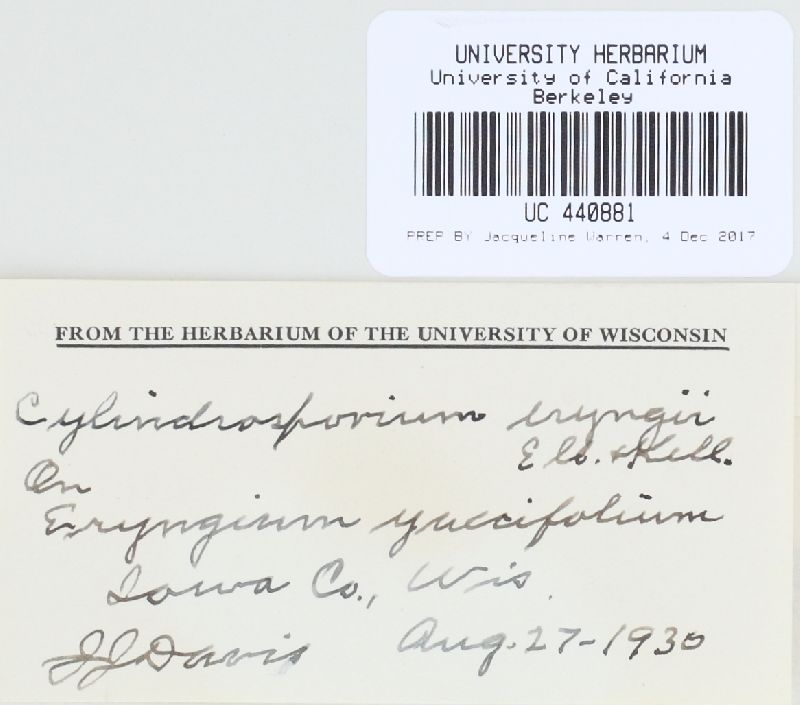 UNIVERSITY HERBARIUM
University of California
Berkeley
UC 440881
PREP BY Jacqueline Warren, 4 Dec 2017
FROM THE HERBARIUM OF THE UNIVERSITY OF WISCONSIN
Cylindrosporium eryngii
Ell. & Kell.
On
Eryngium yuccifolium
Iowa Co., Wis.
JJ Davis Aug. 27-1930